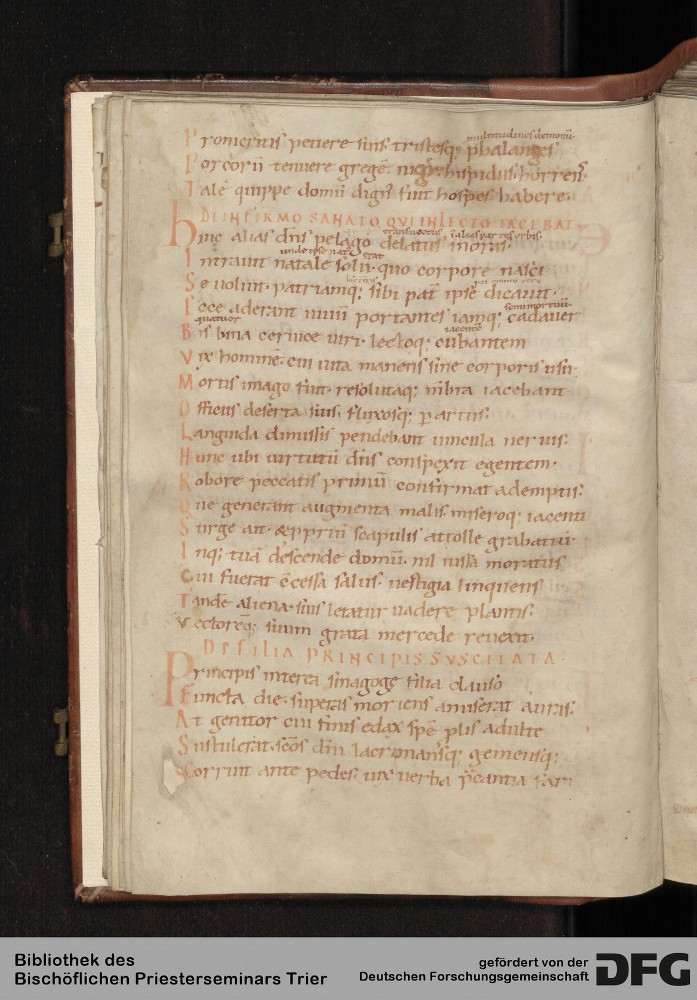 multitudines demonū.
Promeruis petiere suis tristesq; phalanges
Porcorū tenuere gregē. nigrę hispidus horrens.
Tale quippe domū digni fuit hospes habere.
DE INFIRMO SANATO QVI IN LECTO IACEBAT
transuectus
Hinc alias dn̄s pelago delatus in oras.
unde ipse nat' erat
Intrauit natale solū. quo corpore nasci
Se uoluit. patriamq; sibi pat̄ ipse dicauit.
semimortuū
Ecce aderant uiuū portantes iamq; cadauer
quatuor iacentē
Bis bina ceruice uiri. lectoq; cubantem
Vix hominē. cui uita manens sine corporis usu.
Mortis imago fuit. resolutaq; mb̄ra iacebant
Officiis deserta suis. fluxosq; per artus.
Languida dimissis pendebant uincula neruis.
Hunc ubi uirtutū dn̄s conspexit egentem.
Robore peccatis primū confirmat ademptis.
Que generant augmenta malis. miseroq; iacenti
Surge ait. & ppriū scapulis attolle grabattū
Inq; tuā descende domū. nil iussa moratus
Cui fuerat cc̄essa salus. uestigia linquens
Tandē aliena. suis letatur uadere plantis.
Vectoreq; suum grata mercede reuexit.
DE FILIA PRINCIPIS SVSCITATA.
Principis interea sinagoge filia clauso
Functa die. superas moriens amiserat auras.
At genitor cui finis edax spē plis adulte
Sustulerat. scōs dn̄i lacrimansq; gemensq;
Corruit ante pedes. uix uerba p̄cantia fari
Bibliothek des
Bischöflichen Priesterseminars Trier
gefördert von der
Deutschen Forschungsgemeinschaft
DFG